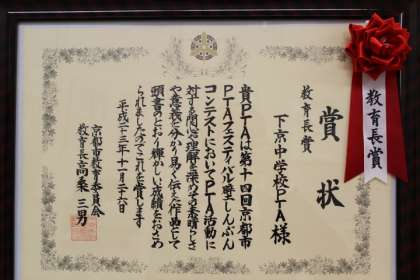 賞状
教育長賞
下京中学校PTA様
貴PTAは第十四回京都市
PTAフェスティバル壁しんぶん
コンテストにおいてPTA活動に
対する関心と理解を深めその素晴らしさ
や意義を分かり易く伝えた作品として
頭書のとおり輝かしい成績をおさめ
られましたのでこれを賞します
平成二十三年十一月二十六日
京都市教育委員会
教育長高桒三男
教育長賞